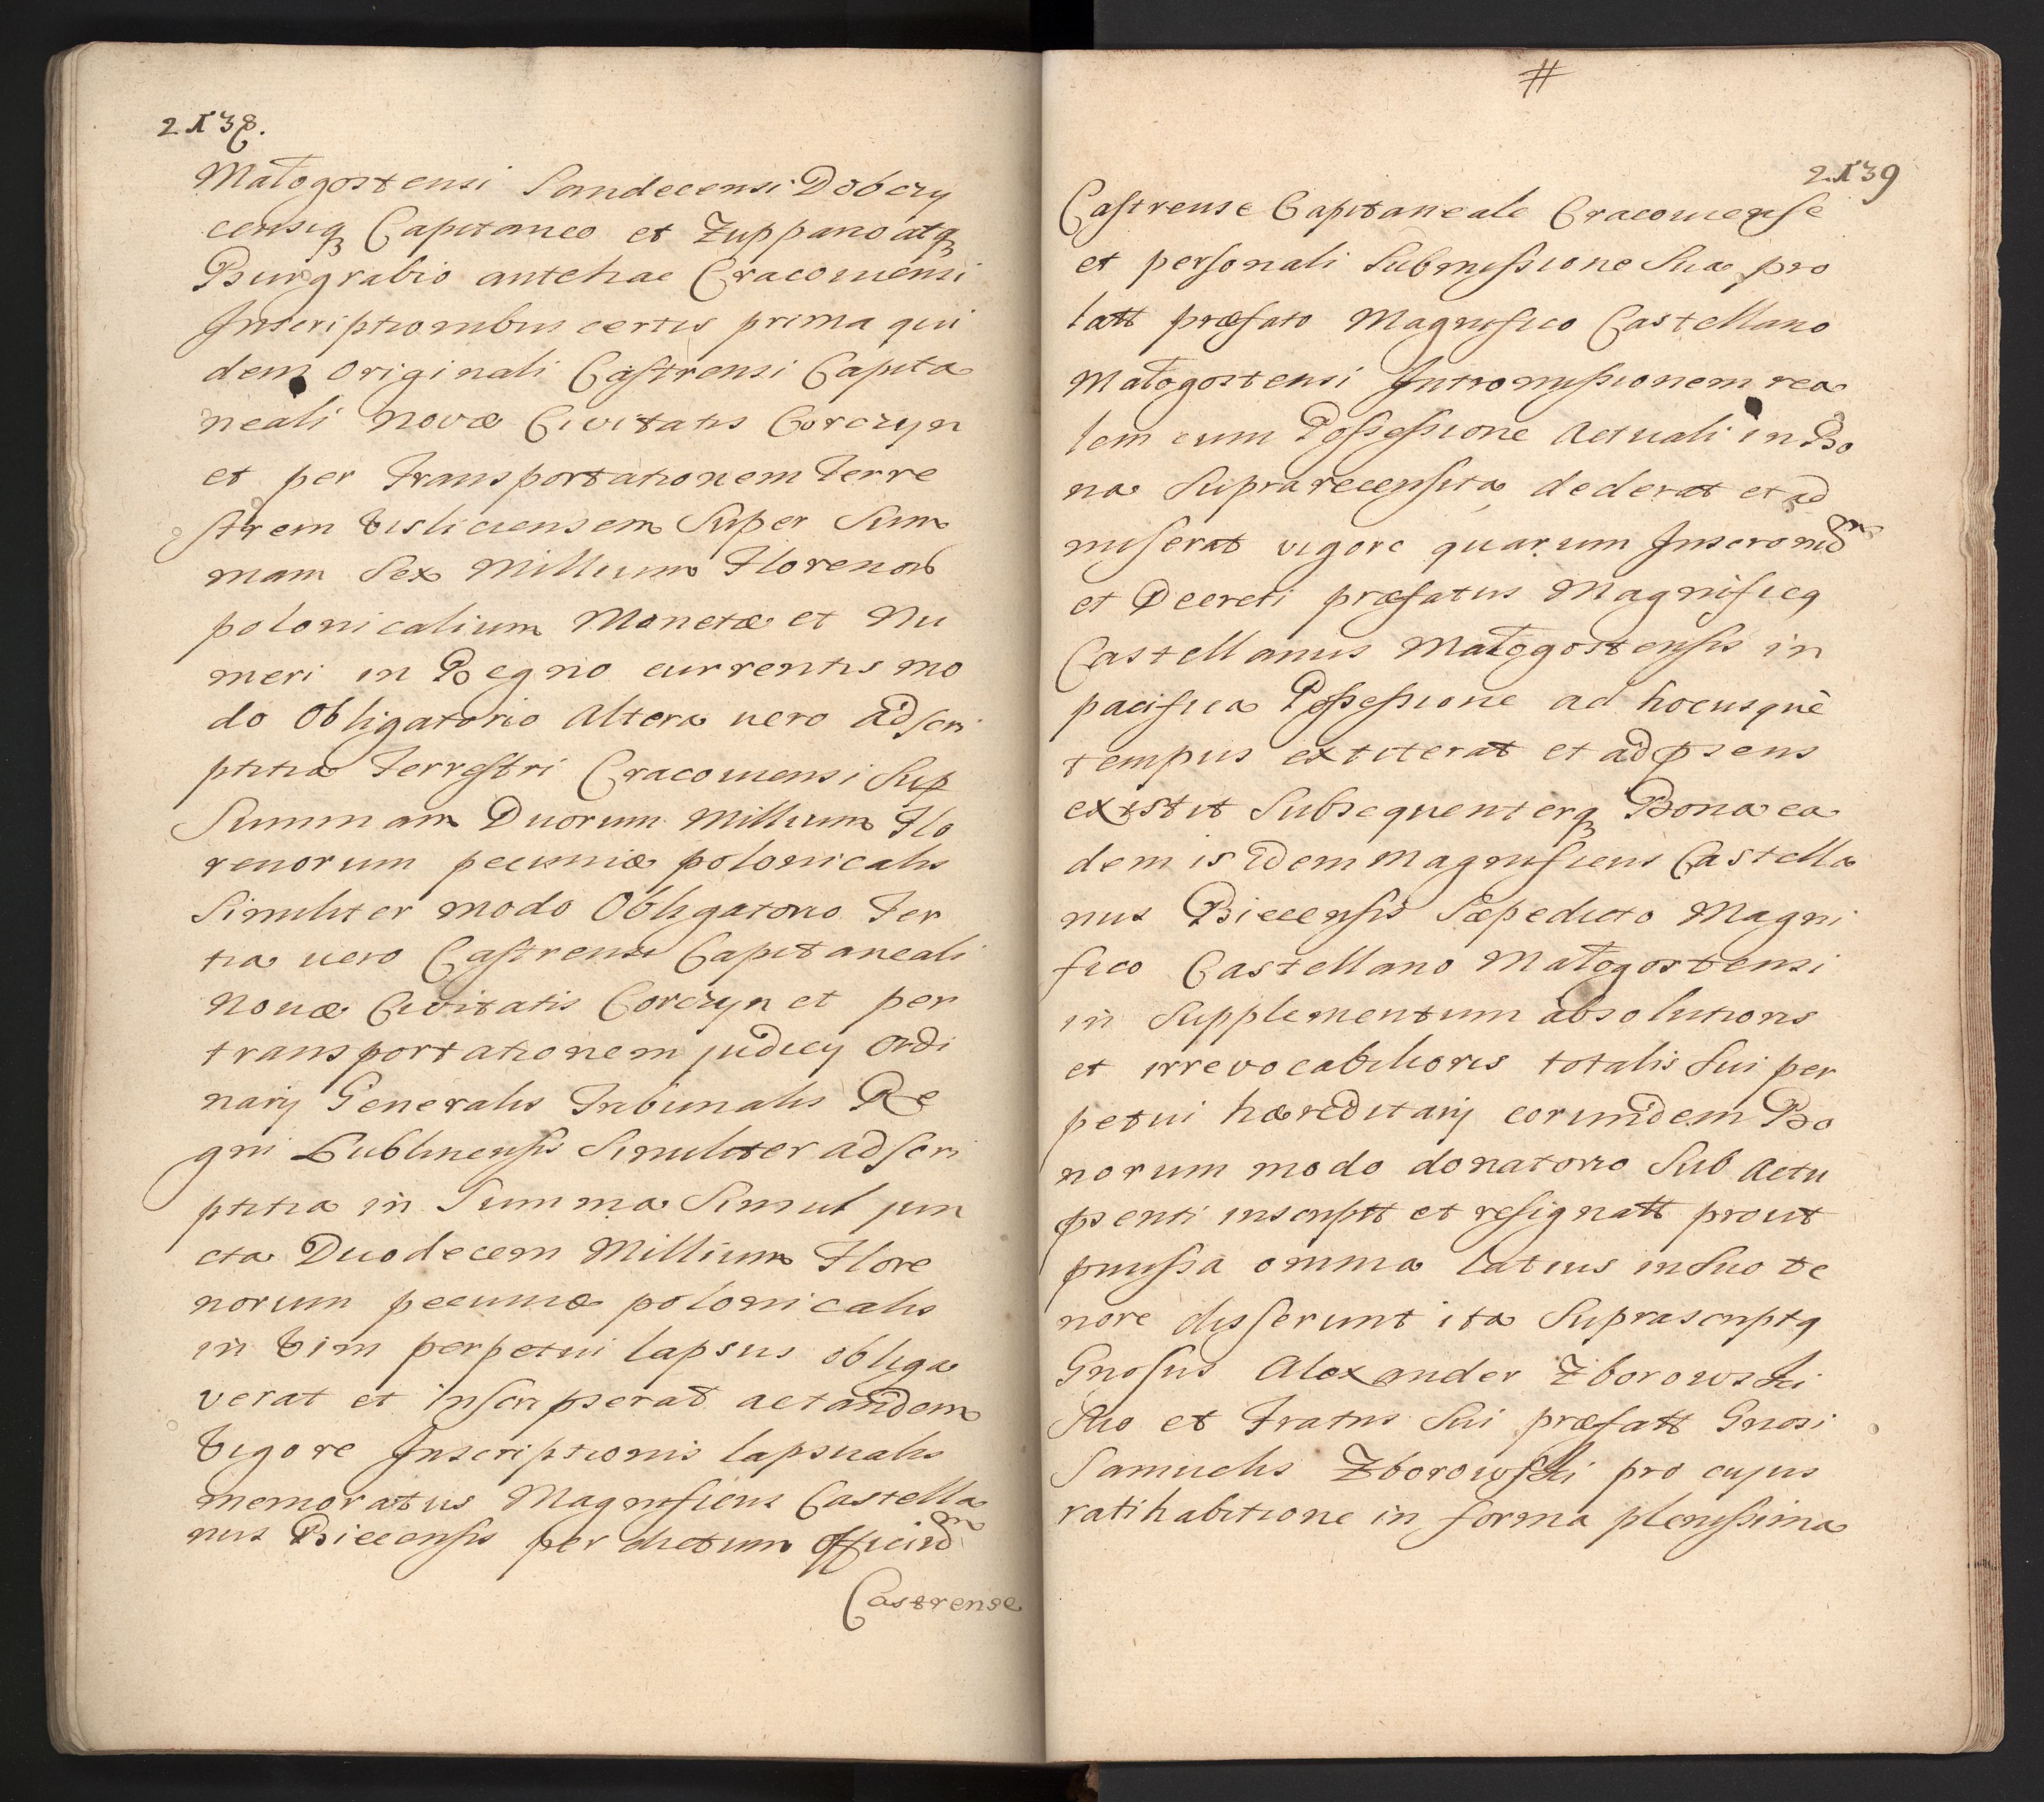 2138.
Małogostensi Sandecensi Dobczy
censiq Capitaneo et Zuppano atq
Burgrabio antehac Cracoviensi
Inscriptionibus certis prima qui
dem Originali Castrensi Capita
neali novæ Civitatis Corczyn
et per Transportationem Terre
strem Visliciensem Super Sum
mam Sex Millium Floreno
polonicalium Monetæ et Nu
meri in Regno currentis mo
do Obligatorio Altera uero adscri
ptitia Terrestri Cracouiensi Sup
Summam Duorum Millium Flo
renorum pecuniæ polonicalis
Similiter modo Obligatorio Ter
tia uero Castrensi Capitaneali
Nouæ Civitatis Corczyn et per
transportationem judicij Ordi
narij Generalis Tribunalis Re
gni Lublinensis Similiter adscri
ptitia in Summa Simul jun
cta Duodecem Millium Flore
norum pecuniæ polonicalis
in Vim perpetui lapsus obliga
verat et inscripserat ac tandem
Vigore Inscriptionis lapsualis
memoratus Magnificus Castella
nus Biecensis per dictum Officium
Castrense
#
2139
Castrense Capitaneale Cracouiense
et personali Submissione Sua pro
latt præfato Magnifico Castellano
Małogostensi Intromissionem rea
lem cum Possessione Actuali in Bo
na Suprarecensita dederat et ad
miserat uigore quarum Inscronum
et Decreti præfatus Magnificq
Castellanus Małogostensis in
pacifica Possessione ad hocusque
tempus extiterat et ad psens
existit Subsequenterq Bona ea
dem is idem Magnificus Castella
nus Biecensis Sæpedicto Magni
fico Castellano Małogostensi
in Supplementum absolutioris
et irrevocabilioris totalis Sui per
petui hæreditarij eorundem Bo
norum modo donatorio Sub Actu
psenti inscriptt et resignatt prout
pmissa omnia latius in Suo te
nore disserunt ita Suprascriptq
Gnosus Alexander Zborowski
Suo et Fratris Sui præfatt Gnosi
Samuelis Zborowski pro cujus
ratihabitione in forma plenissima